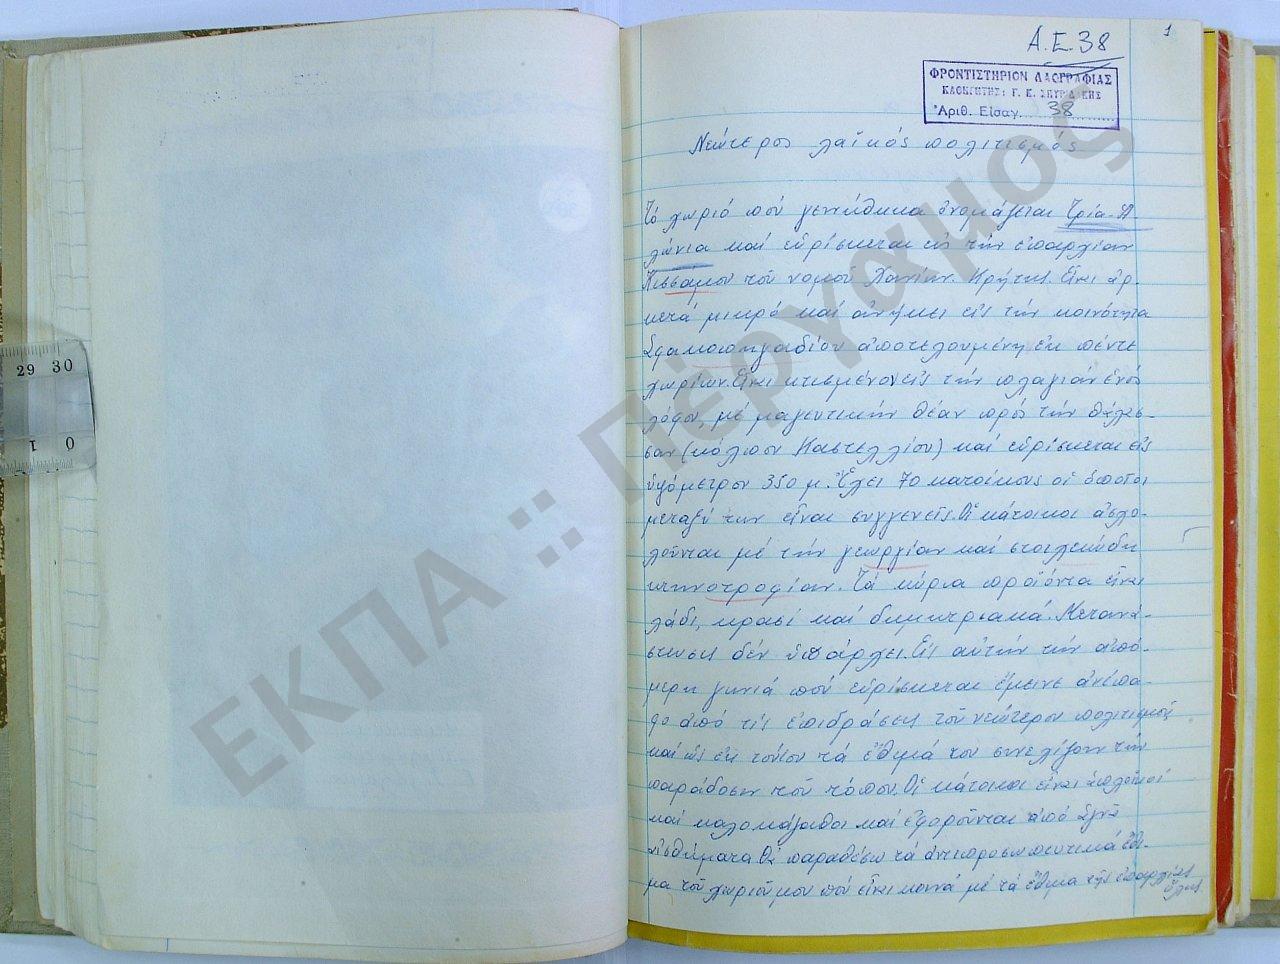 1
Α.Ε.38
ΦΡΟΝΤΙΣΤΗΡΙΟΝ ΛΑΟΓΡΑΦΙΑΣ
ΚΑΘΗΓΗΤΗΣ: Γ. Κ. ΣΠΥΡΙΔΑΚΗΣ
Ἀριθ. Εἰσαγ. 38
Νεώτερος λαϊκός πολιτισμός
Τό χωριό πού γεννήθηκα ὀνομάζεται Τρία-Ἀ-
λώνια καί εὑρίσκεται εἰς τήν ἐπαρχίαν
Κισσάμου τοῦ νομοῦ Χανίων. Κρήτης. Εἶναι ἀρ-
κετά μικρό καί ἀνήκει εἰς τήν κοινότητα
Σφακοπηγαδίου ἀποτελουμένη ἐκ πέντε
χωρίων. Εἶναι κτισμένον εἰς τήν πλαγιάν ἑνός
λόφου, μέ μαγευτικήν θέαν πρός τήν θάλασ-
σαν (κόλπον Καστελλίου) καί εὑρίσκεται εἰς
ὑψόμετρον 350 μ. Ἔχει 70 κατοίκους οἱ ὁποῖοι
μεταξύ των εἶναι συγγενεῖς. Οἱ κάτοικοι ἀσχο-
λοῦνται μέ τήν γεωργίαν καί στοιχειώδη
κτηνοτροφίαν. Τά κύρια προϊόντα εἶναι
λάδι, κρασί καί δημητριακά. Μετανά-
στευσις δέν ὑπάρχει. Εἰς αὐτήν τήν ἀπό-
μερη γωνιά πού εὑρίσκεται ἔμεινε ἀνέπα-
φο ἀπό τίς ἐπιδράσεις τοῦ νεώτερου πολιτισμοῦ
καί ὡς ἐκ τούτου τά ἔθιμά του συνεχίζουν τήν
παράδοσιν τοῦ τόπου. Οἱ κάτοικοι εἶναι ἁπλοϊκοί
καί καλοκάγαθοι καί ἐμφοροῦνται ἀπό ἁγνά
αἰσθήματα. Θά παραθέσω τά ἀντιπροσωπευτικά ἔθι-
μα τοῦ χωριοῦ μου πού εἶναι κοινά μέ τά ἔθιμα τῆς ἐπαρχίας
ὅλης
29 30
1 0
ΕΚΠΑ :: Πέργαμος